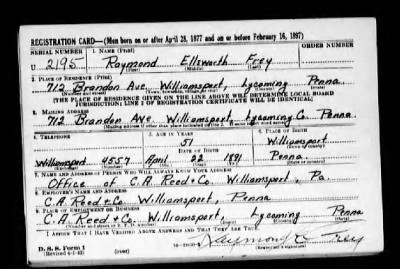 REGISTRATION CARD—(Men born on or after April 28, 1877 and on or before February 16, 1897)
SERIAL NUMBER 1. NAME (Print) ORDER NUMBER
U 2195 Raymond Ellsworth Frey
(First) (Middle) (Last)
2. PLACE OF RESIDENCE (Print)
712 Brandon Ave. Williamsport, Lycoming Penna.
(THE PLACE OF RESIDENCE GIVEN ON THE LINE ABOVE WILL DETERMINE LOCAL BOARD
JURISDICTION; LINE 2 OF REGISTRATION CERTIFICATE WILL BE IDENTICAL)
3. MAILING ADDRESS
712 Brandon Ave. Williamsport, Lycoming Co. Penna.
4. TELEPHONE 5. AGE IN YEARS 6. PLACE OF BIRTH
51 Williamsport
DATE OF BIRTH
Williamsport 4557 April 22 1891 Penna.
7. NAME AND ADDRESS OF PERSON WHO WILL ALWAYS KNOW YOUR ADDRESS
Office of C.A. Reed & Co. Williamsport, Pa.
8. EMPLOYER'S NAME AND ADDRESS
C.A. Reed & Co. Williamsport, Penna
9. PLACE OF EMPLOYMENT OR BUSINESS
C.A. Reed & Co. Williamsport, Lycoming Penna
I AFFIRM THAT I HAVE VERIFIED ABOVE ANSWERS AND THAT THEY ARE TRUE.
D. S. S. Form 1
(Revised 4-1-42) (over)
Raymond E. Frey